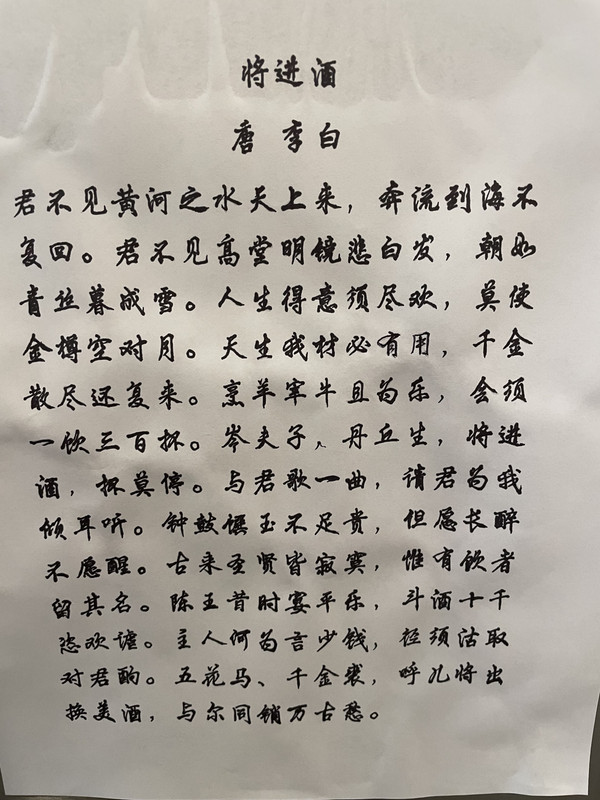 将进酒
唐 李白
君不见黄河之水天上来，奔流到海不
复回。君不见高堂明镜悲白发，朝如
青丝暮成雪。人生得意须尽欢，莫使
金樽空对月。天生我材必有用，千金
散尽还复来。烹羊宰牛且为乐，会须
一饮三百杯。岑夫子、丹丘生，将进
酒，杯莫停。与君歌一曲，请君为我
倾耳听。钟鼓馔玉不足贵，但愿长醉
不愿醒。古来圣贤皆寂寞，惟有饮者
留其名。陈王昔时宴平乐，斗酒十千
恣欢谑。主人何为言少钱，径须沽取
对君酌。五花马、千金裘，呼儿将出
换美酒，与尔同销万古愁。